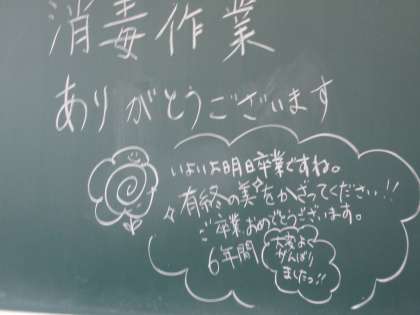 消毒作業
ありがとうございます
いよいよ明日卒業ですね。
有終の美をかざってください!!
ご卒業おめでとうございます。
6年間
大変よく
がんばり
ましたっ!!